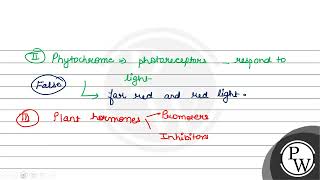 II Phytochrome ⇒ photoreceptors - respond to
light.
False ↳ far red and red light.
III Plant hormones Promoters
Inhibitors
PW